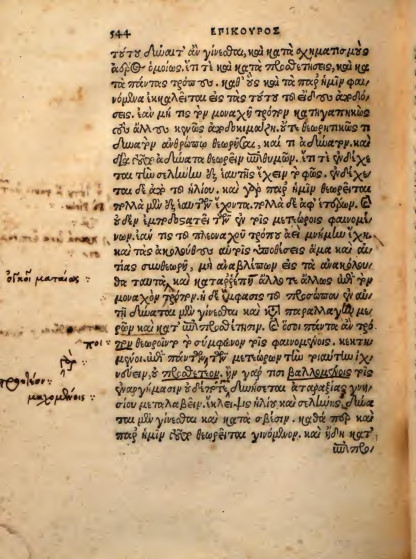 544 ΕΠΙΚΟΥΡΟΣ
τούτου δύναιτ' ἂν γίνεσθαι, καὶ κατὰ σχηματισμοὺς
ἀέρος ὁμοίως. ἔτι τὲ καὶ κατὰ προσθετήσεις, καὶ κα
τὰ πάντας τρόπους. καθ' οὓς καὶ τὰ παρ' ἡμῖν φαι
νόμενα ἐκκαλεῖται εἰς τὰς τούτου τοῦ εἴδους ἀποδό
σεις. ἐὰν μή τις τὸν μοναχῆ τρόπον κατηγαπηκὼς
τοὺς ἄλλους κενῶς ἀποδοκιμάζῃ. οὔτε θεωρητικῶς τί
δυνατὸν ἀνθρώπῳ θεωρῆσαι, καὶ τί ἀδύνατον. καὶ
διὰ τοῦτο ἀδύνατα θεωρεῖν ἐπιθυμῶν. ἔτι τὲ ἐνδέχε
ται τὴν σελήνην ἐξ ἑαυτῆς ἔχειν τὸ φῶς. ἐνδέχε
ται δὲ ἀπὸ τοῦ ἡλίου. καὶ γὰρ παρ' ἡμῖν θεωρεῖται
πολλὰ μὲν ἐξ ἑαυτῶν ἔχοντα. πολλὰ δὲ ἀφ' ἑτέρων. καὶ
οὐδὲν ἐμποδοστατεῖ τῶν ἐν τοῖς μετεώροις φαινομέ
νων. ἐάν τις τοῦ πλεοναχοῦ τρόπου ἀεὶ μνήμην ἔχῃ.
καὶ τὰς ἀκολούθους αὐτοῖς ὑποθέσεις ἅμα καὶ αἰ
τίας συνθεωρῇ, μὴ ἀναβλέπων εἰς τὰ ἀνακόλου
θα ταῦτα, καὶ καταρρέπῃ ἄλλοτε ἄλλως ἐπὶ τὸν
ὀγκοῖ ματαίως
μοναχὸν τρόπον. ἡ δὲ ἔμφασις τοῦ προσώπου ἐν αὐ
τῇ δύναται μὲν γίνεσθαι καὶ κατὰ παραλλαγὴν με
ρῶν καὶ κατ' ἐπιπροσθέτησιν. καὶ ὅσοι πάντα ἂν τρό
ποι
πον θεωροῖντο τὸ σύμφωνον τοῖς φαινομένοις. κεκτη
μένοι. ἐπὶ πάντων γὰρ τῶν μετεώρων τὴν τοιαύτην ἴχ
νευσιν, οὐ προθετέον. ἢν γάρ τισι βαλλομένοις τοῖς
προθετέον
μαχομένοις
ἐναργήμασιν οὐδέποτε δυνήσεται ἀταραξίας γνη
σίου μεταλαβεῖν. ἔκλειψις ἡλίου καὶ σελήνης, δύνα
ται μὲν γίνεσθαι καὶ κατὰ σβέσιν. καθά περ καὶ
παρ' ἡμῖν τοῦτο θεωρεῖται γινόμενον. καὶ ἤδη κατ'
ἐπιπρο/